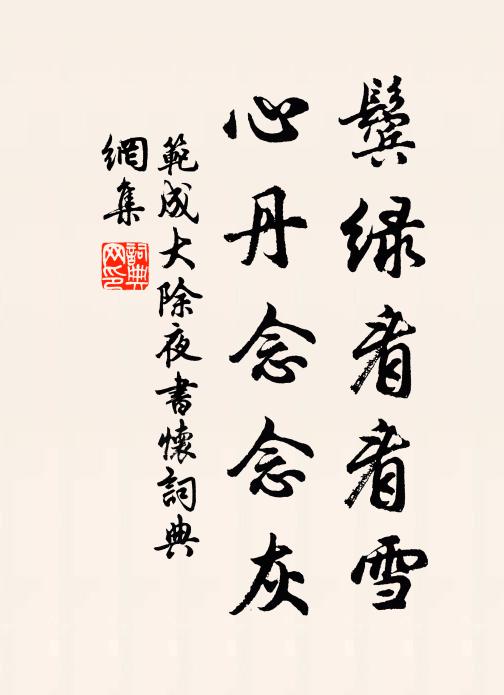 鬓绿看看雪
心丹念念灰
範成大除夜書懷詞典
網集
詞典
网印